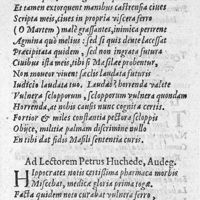 Et tamen extorquent manibus castrensia ciues
Scripta meis, ciues in propria viscera ferro
(O Martem) malè grassantes, inimica perrerrere
Agmina quò melius: sed si quis deute lacessat
Præcipitata quidem, sed non ingrata futura
Ciuibus ista meis, tibi si Masilae probentur,
Non moueor viuens sæclis laudata futuris
Iudicio laudata tuo. Laudas? horrenda valete
Vulnera scloporum, scloporum vulnera quondam
Horrenda, at nobis causis nunc cognita certis.
Fortior & miles constantia pectora sclopis
Obijce, militiæ palmam discrimine nullo
En tibi dat fidis Masili sententia curis.
Ad Lectorem Petrus Huchede, Andeg.
Hippocrates noris certissima pharmaca morbis
Miscebat, medicæ gloria prima togæ.
Facta quidem neis curabat vulnera ferro,